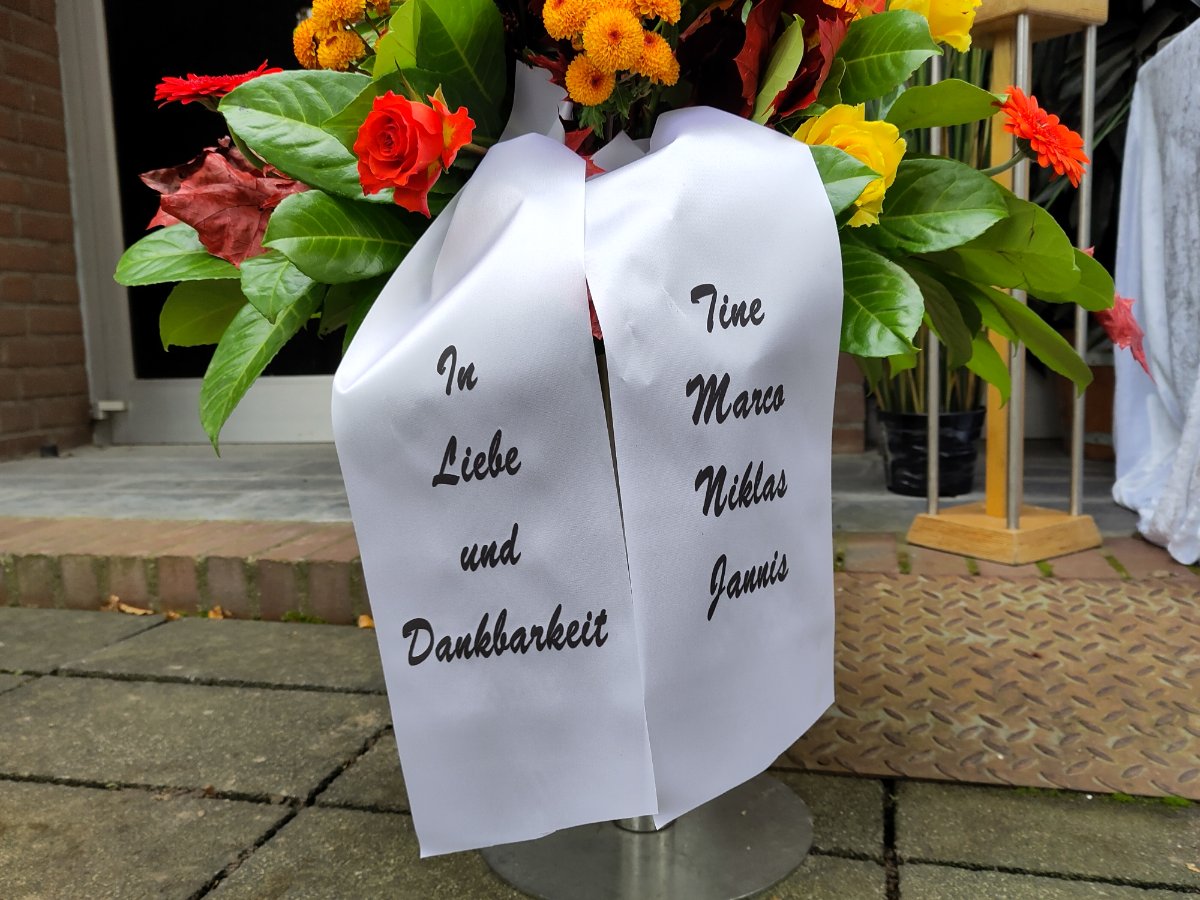 In
Liebe
und
Dankbarkeit
Tine
Marco
Niklas
Jannis